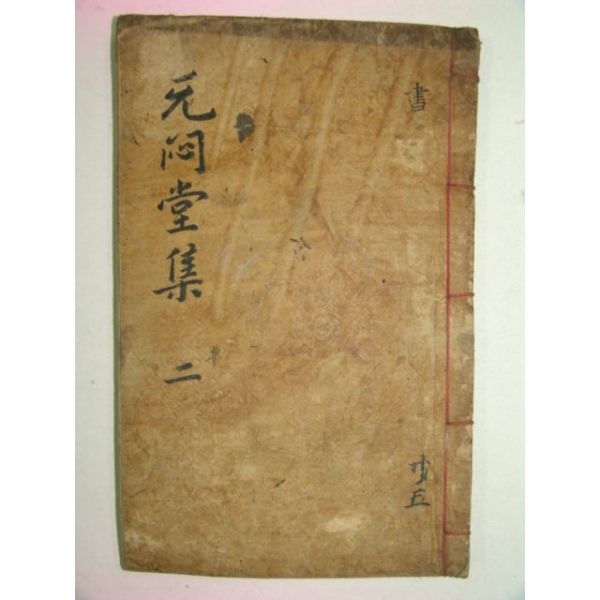 无悶堂集 二
書
共五